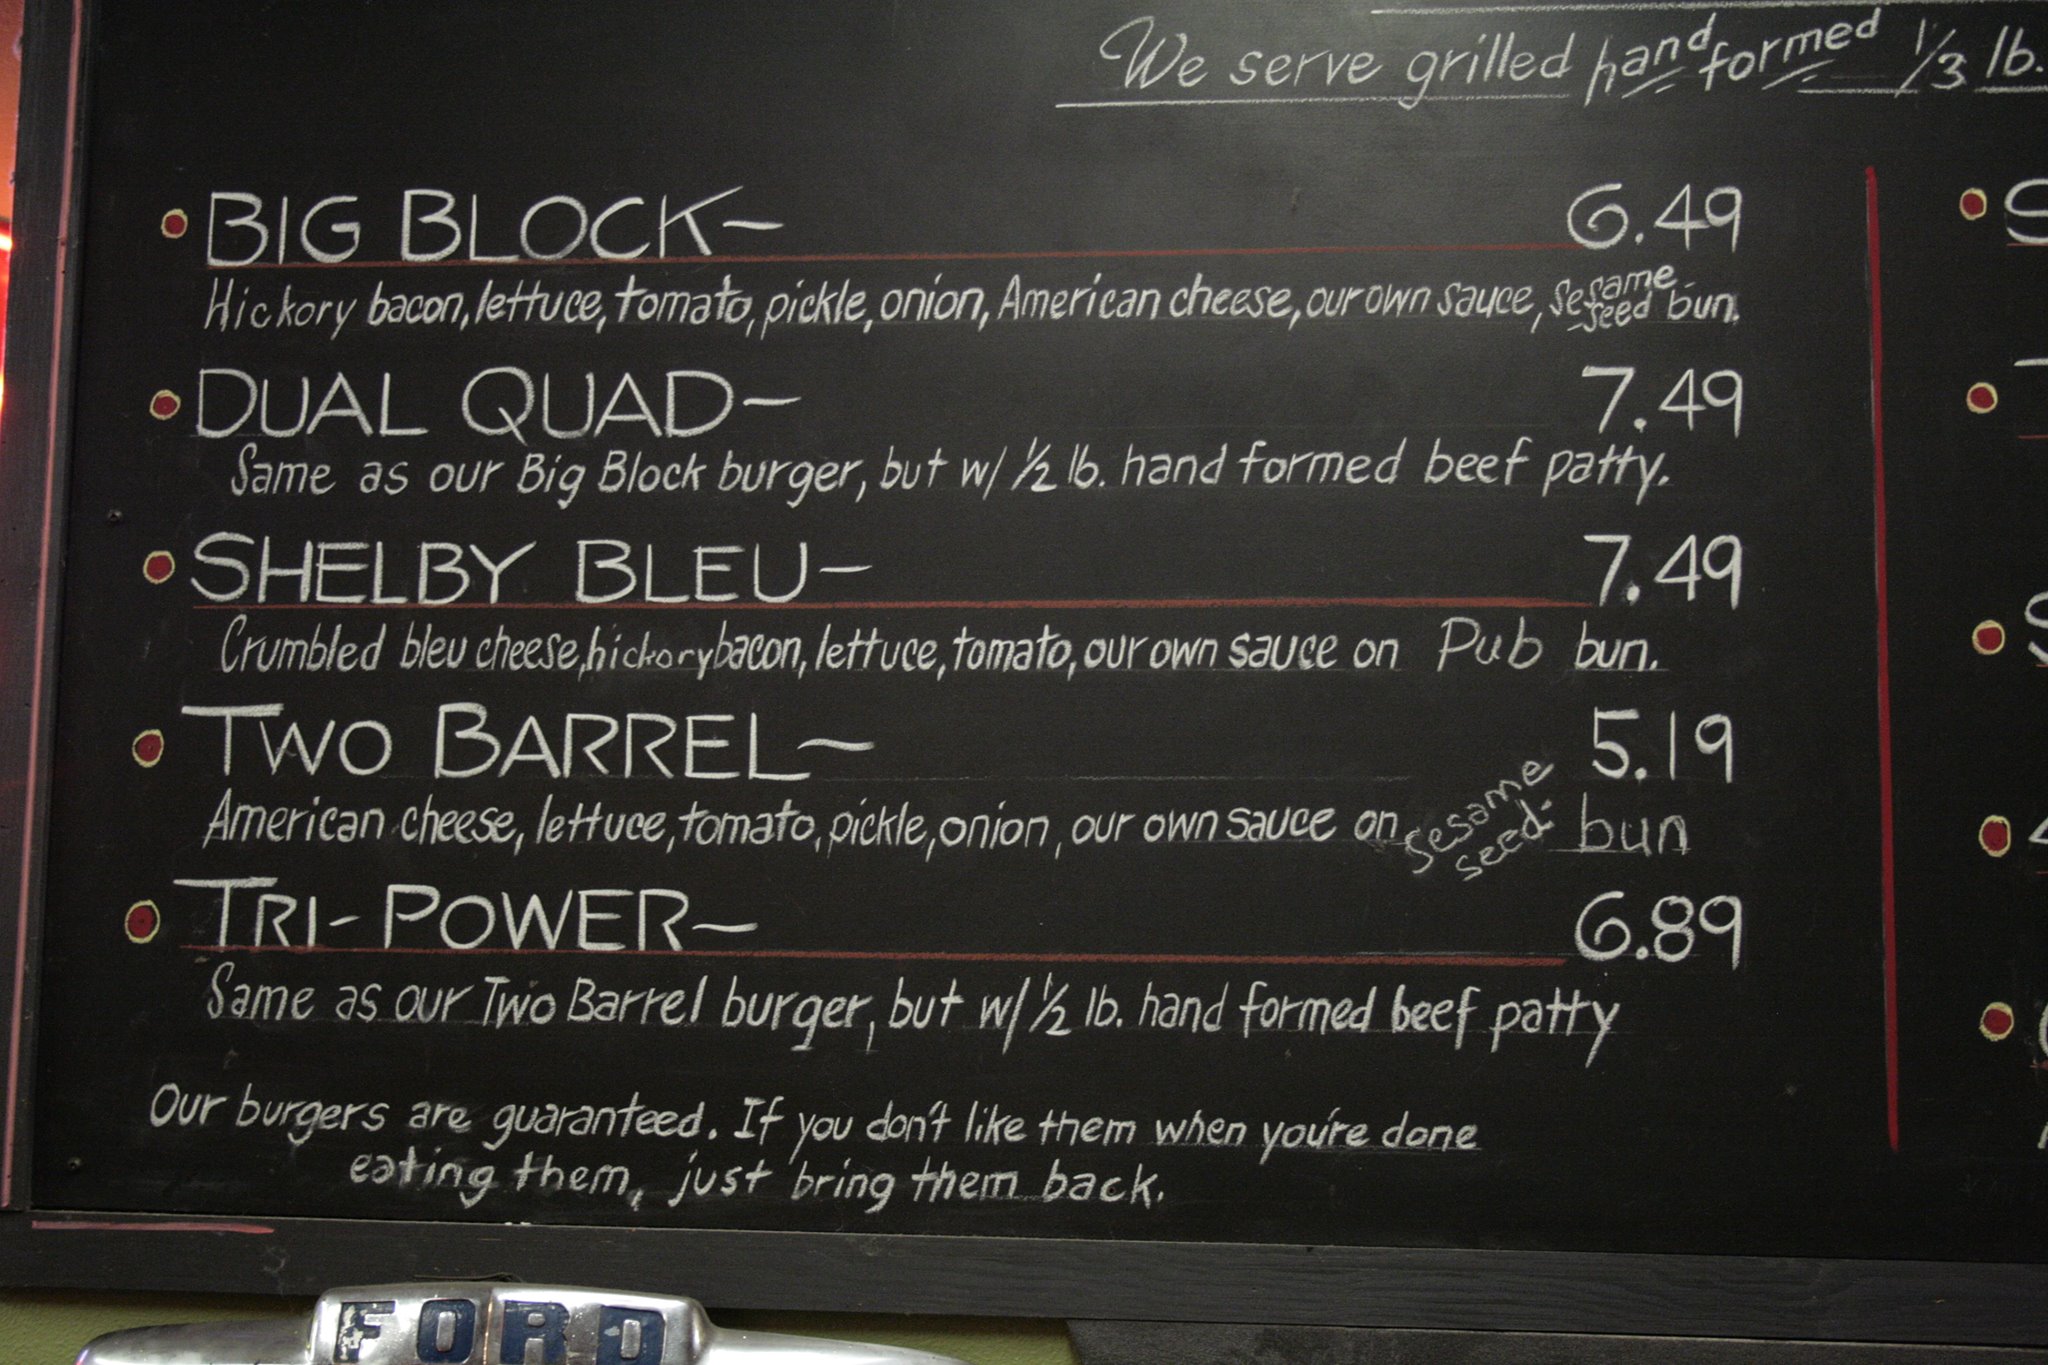 We serve grilled hand formed 1/3 lb.
BIG BLOCK~ 6.49
Hickory bacon, lettuce, tomato, pickle, onion, American cheese, our own sauce, sesame seed bun.
DUAL QUAD~ 7.49
Same as our Big Block burger, but w/ 1/2 lb. hand formed beef patty.
SHELBY BLEU~ 7.49
Crumbled bleu cheese, hickory bacon, lettuce, tomato, our own sauce on Pub bun.
TWO BARREL~ 5.19
American cheese, lettuce, tomato, pickle, onion, our own sauce on sesame seed bun
TRI-POWER~ 6.89
Same as our Two Barrel burger, but w/ 1/2 lb. hand formed beef patty
Our burgers are guaranteed. If you don't like them when you're done
eating them, just bring them back.
FORD